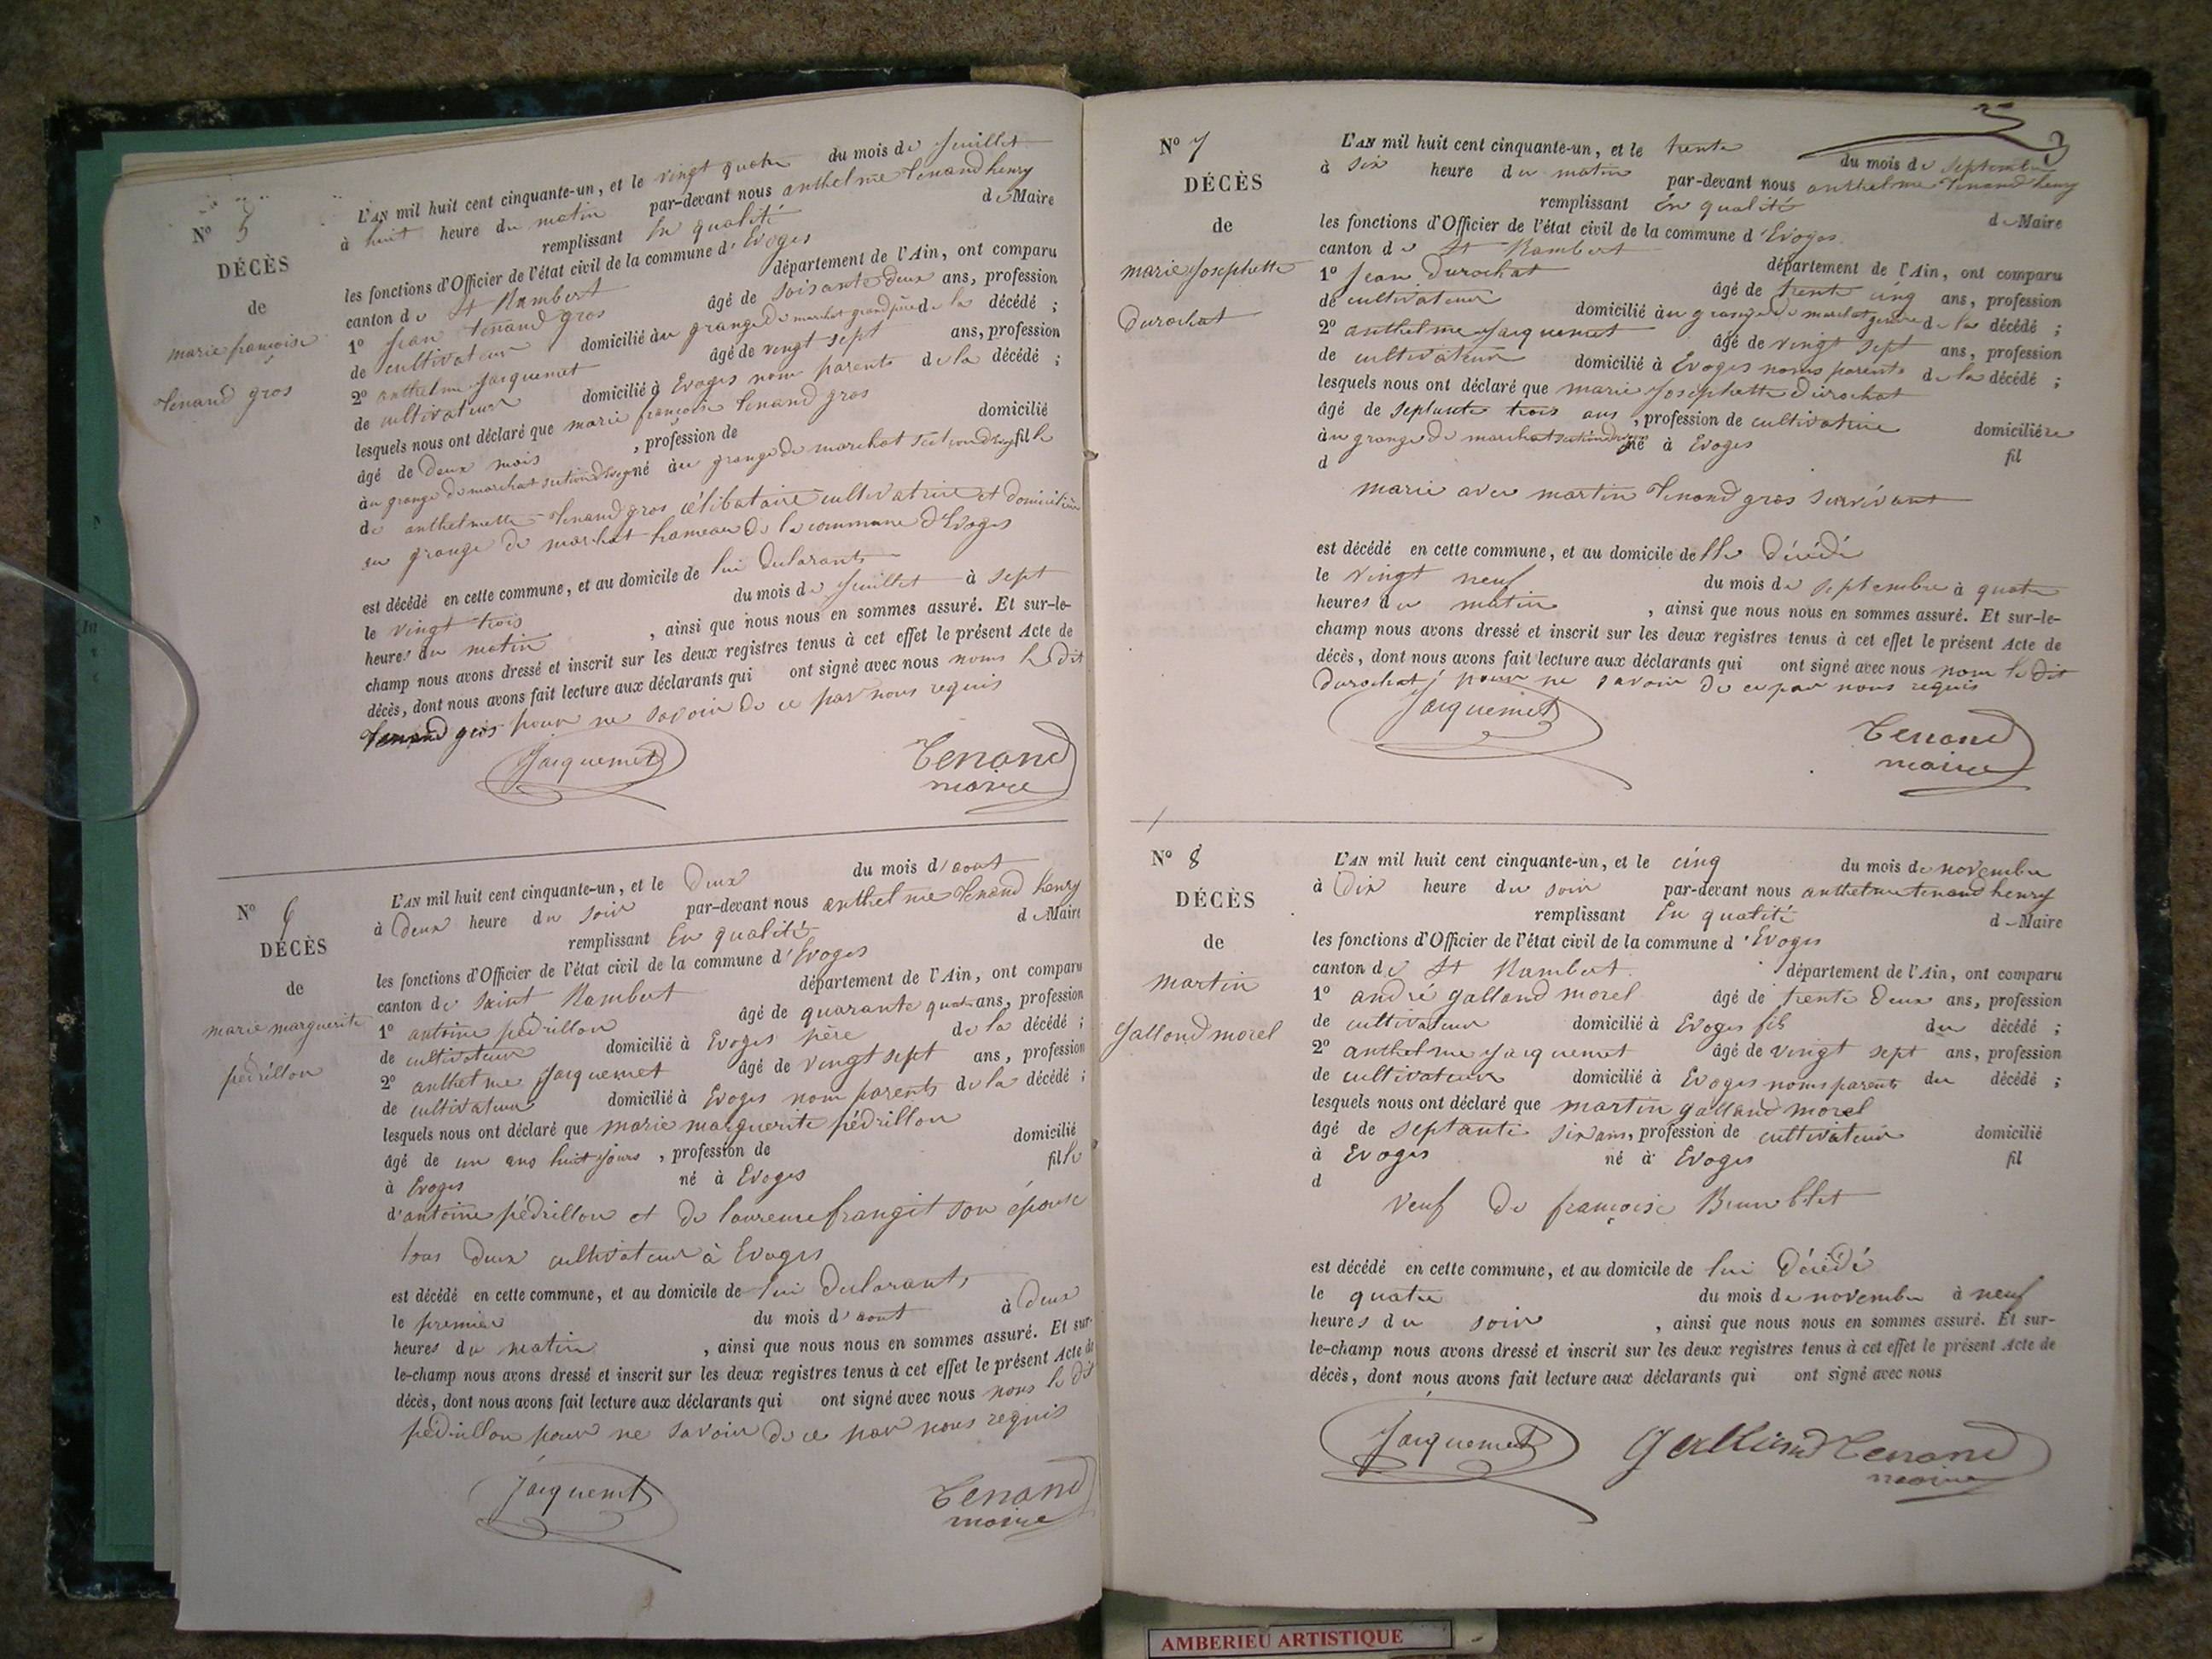 N° 5
DÉCÈS
de
marie françoise
tenand gros
L'AN mil huit cent cinquante-un, et le vingt quatre du mois de Juillet
à huit heure du matin par-devant nous anthelme tenand henry
remplissant En qualité de Maire
les fonctions d'Officier de l'état civil de la commune d'Evoges
canton de St Rambert département de l'Ain, ont comparu
1° Jean tenand gros âgé de soisante deux ans, profession
de cultivateur domicilié àu grange de marchat grand père de la décédé ;
2° anthelme Jacquemet âgé de vingt sept ans, profession
de cultivateur domicilié à Evoges nom parents de la décédé ;
lesquels nous ont déclaré que marie françoise tenand gros
âgé de deux mois , profession de domicilié
àu grange de marchat section d'Evoges né àu grange de marchat section d'Evoges fille
de anthelmette tenand gros célibataire cultivatrice et domiciliée
au grange de marchat hameau de la commune d'Evoges
est décédé en cette commune, et au domicile de lui déclarant
le vingt trois du mois de Juillet à sept
heures du matin , ainsi que nous nous en sommes assuré. Et sur-le-
champ nous avons dressé et inscrit sur les deux registres tenus à cet effet le présent Acte de
décès, dont nous avons fait lecture aux déclarants qui ont signé avec nous noms le dit
tenand gros pour ne savoir de ce par nous requis
Jacquemet Tenand
maire
N° 6
DÉCÈS
de
marie marguerite
pédrillon
L'AN mil huit cent cinquante-un, et le deux du mois d'aout
à deux heure du soir par-devant nous anthelme tenand henry
remplissant En qualité de Maire
les fonctions d'Officier de l'état civil de la commune d'Evoges
canton de Saint Rambert département de l'Ain, ont comparu
1° antoine pédrillon âgé de quarante quatre ans, profession
de cultivateur domicilié à Evoges père de la décédé ;
2° anthelme Jacquemet âgé de vingt sept ans, profession
de cultivateur domicilié à Evoges nom parents de la décédé ;
lesquels nous ont déclaré que marie marguerite pédrillon
âgé de un ans huit jours , profession de domicilié
à Evoges né à Evoges fille
d'antoine pédrillon et de laurence frangit son épouse
tous deux cultivateur à Evoges
est décédé en cette commune, et au domicile de lui déclarant
le premier du mois d'aout à deux
heures du matin , ainsi que nous nous en sommes assuré. Et sur-
le-champ nous avons dressé et inscrit sur les deux registres tenus à cet effet le présent Acte de
décès, dont nous avons fait lecture aux déclarants qui ont signé avec nous noms le dit
pédrillon pour ne savoir de ce par nous requis
Jacquemet Tenand
maire
N° 7
DÉCÈS
de
marie Josephette
Durochat
L'AN mil huit cent cinquante-un, et le trente du mois de Septembre
à six heure du matin par-devant nous anthelme tenand henry
remplissant En qualité de Maire
les fonctions d'Officier de l'état civil de la commune d'Evoges
canton de St Rambert département de l'Ain, ont comparu
1° Jean Durochat âgé de trente cinq ans, profession
de cultivateur domicilié àu grange de marchat gendre de la décédé ;
2° anthelme Jacquemet âgé de vingt sept ans, profession
de cultivateur domicilié à Evoges noms parents de la décédé ;
lesquels nous ont déclaré que marie Josephette Durochat
âgé de septante trois ans , profession de cultivatrice domiciliée
àu grange de marchat section d'Evoges né à Evoges fil
d
marie avec martin tenand gros survivant
est décédé en cette commune, et au domicile de lle décédé
le vingt neuf du mois de septembre à quatre
heures du matin , ainsi que nous nous en sommes assuré. Et sur-le-
champ nous avons dressé et inscrit sur les deux registres tenus à cet effet le présent Acte de
décès, dont nous avons fait lecture aux déclarants qui ont signé avec nous nom le dit
Durochat pour ne savoir de ce par nous requis
Jacquemet Tenand
maire
N° 8
DÉCÈS
de
martin
galland morel
L'AN mil huit cent cinquante-un, et le cinq du mois de novembre
à dix heure du soir par-devant nous anthelme tenand henry
remplissant En qualité de Maire
les fonctions d'Officier de l'état civil de la commune d'Evoges
canton de St Rambert département de l'Ain, ont comparu
1° andré galland morel âgé de trente deux ans, profession
de cultivateur domicilié à Evoges fils du décédé ;
2° anthelme Jacquemet âgé de vingt sept ans, profession
de cultivateur domicilié à Evoges noms parents du décédé ;
lesquels nous ont déclaré que martin galland morel
âgé de septante six ans, profession de cultivateur domicilié
à Evoges né à Evoges fil
d
veuf de françoise Brun blet
est décédé en cette commune, et au domicile de lui décédé
le quatre du mois de novembre à neuf
heures du soir , ainsi que nous nous en sommes assuré. Et sur-
le-champ nous avons dressé et inscrit sur les deux registres tenus à cet effet le présent Acte de
décès, dont nous avons fait lecture aux déclarants qui ont signé avec nous
Jacquemet Galland Tenand
maire
AMBERIEU ARTISTIQUE